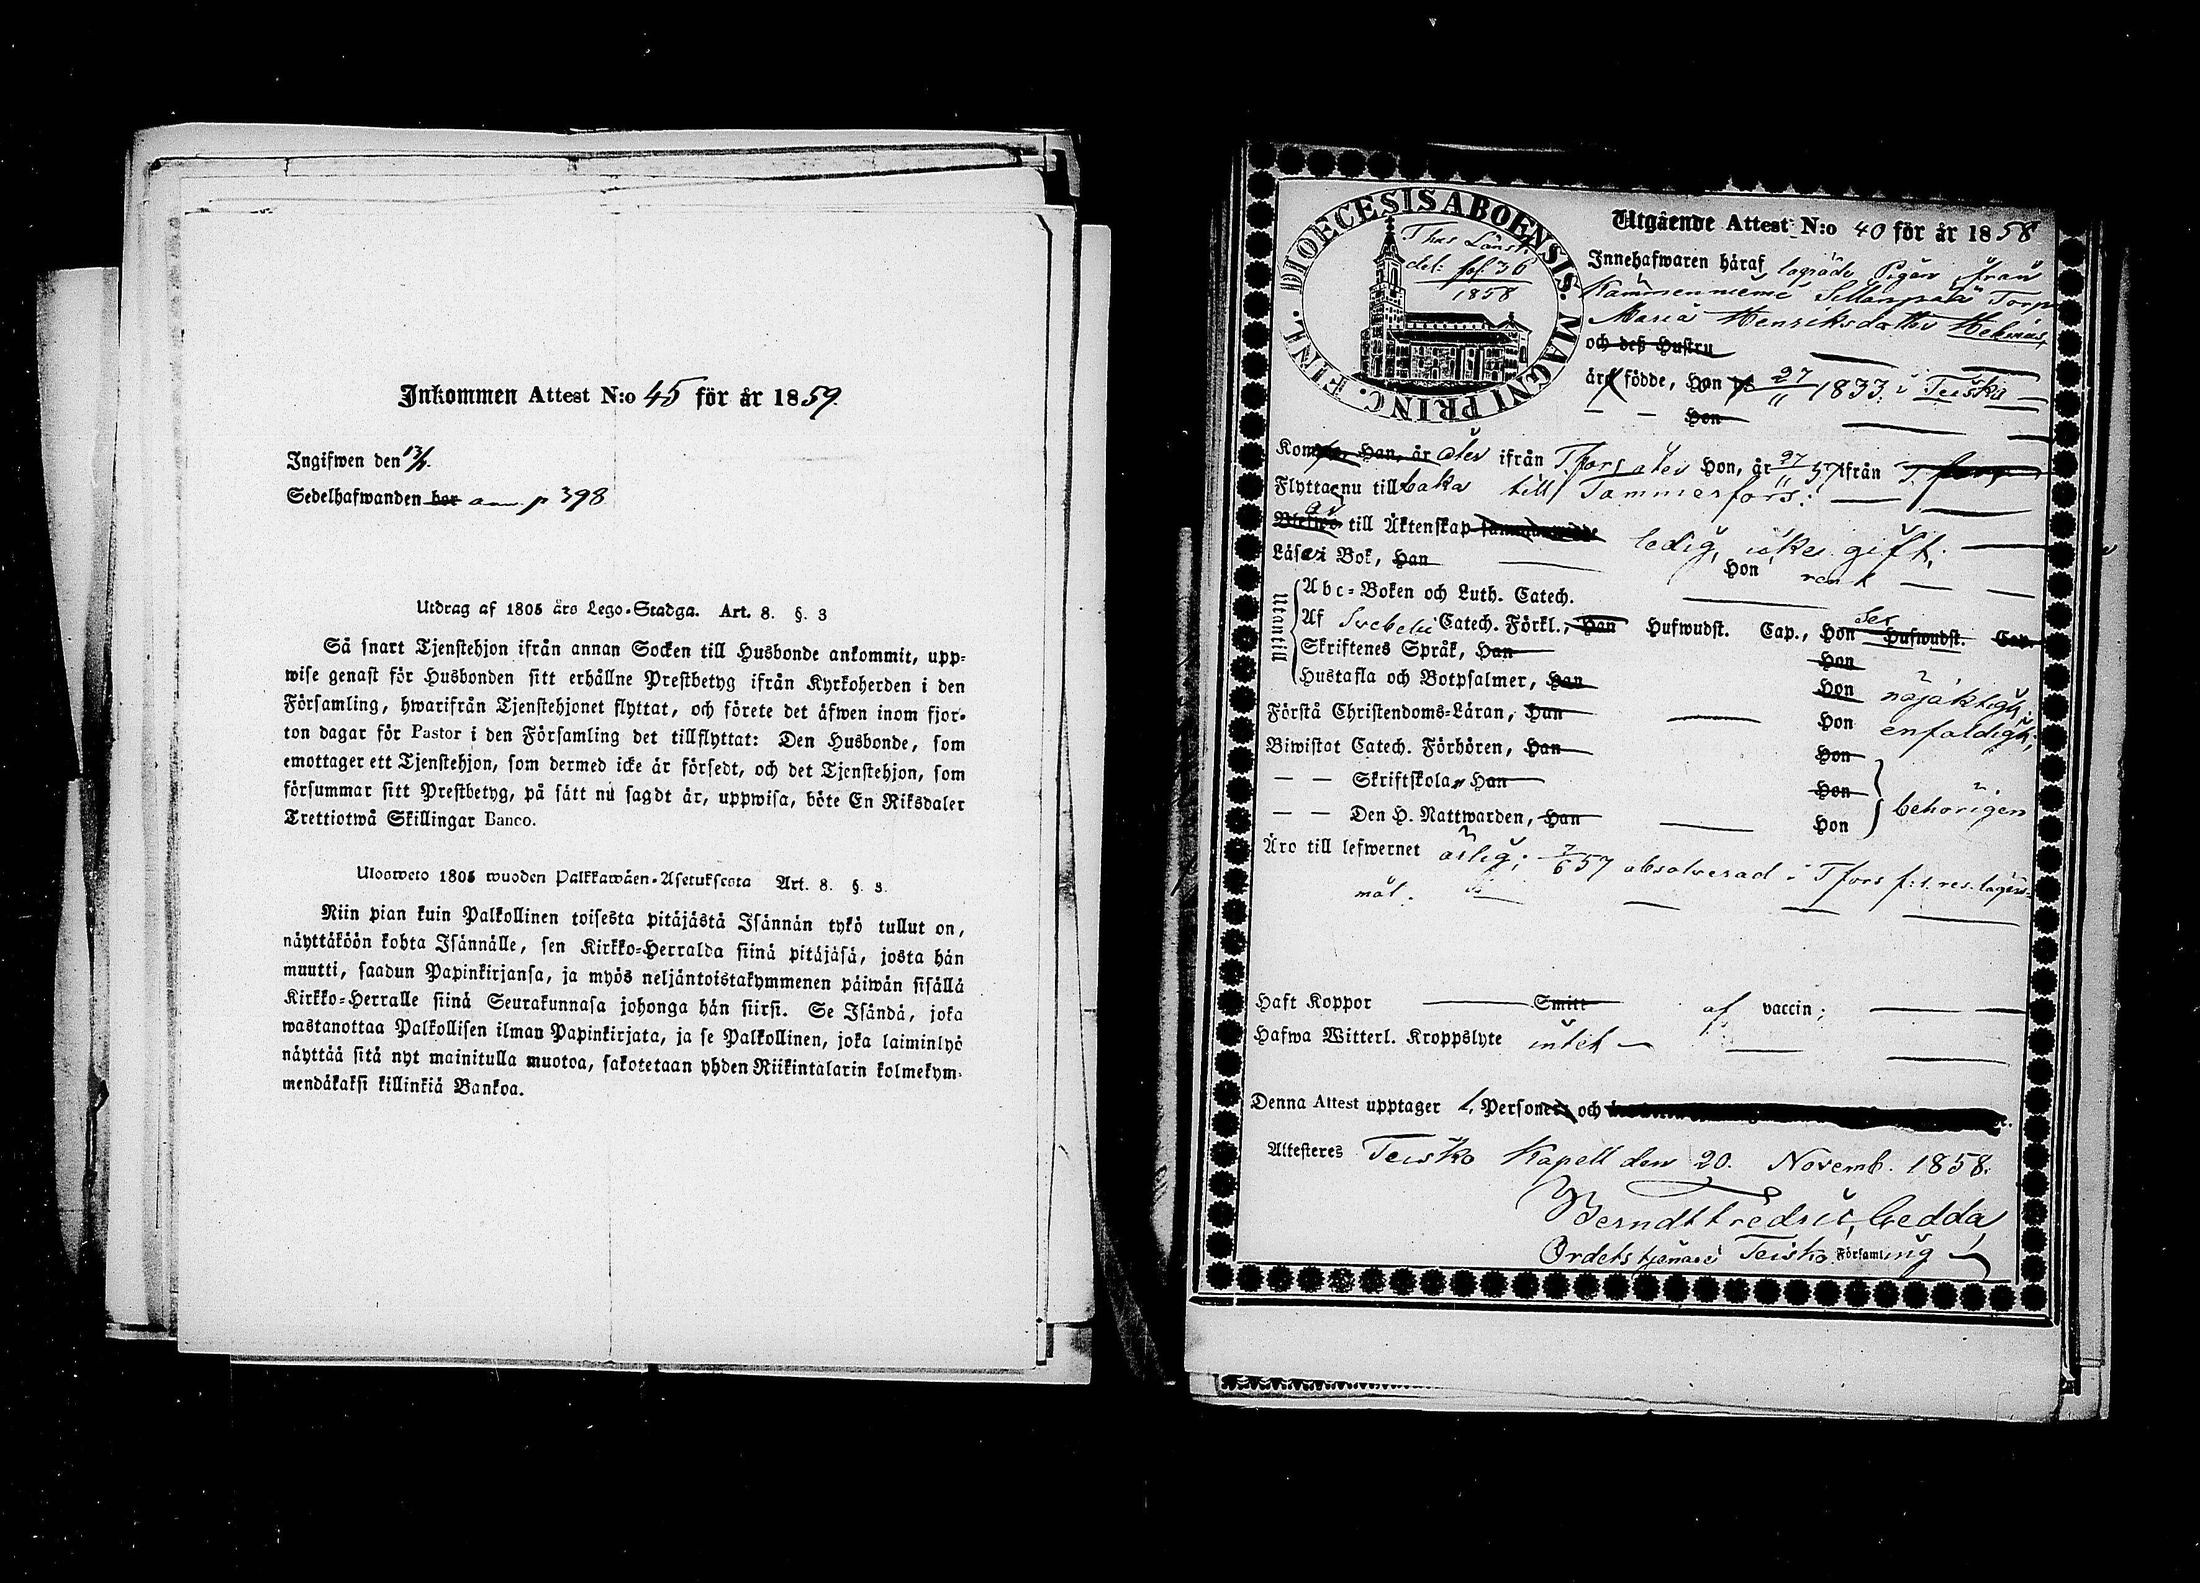 Inkommen Attest N:o 45 för år 1859.
Ingifwen den 13/1.
Sedelhafwanden bor ann. p 398
Utdrag af 1805 års Lego-Stadga. Art. 8. §. 3
Så snart Tjenstehjon ifrån annan Socken till Husbonde ankommit, upp-
wise genast för Husbonden sitt erhållne Prestbetyg ifrån Kyrkoherden i den
Församling, hwarifrån Tjenstehjonet flyttat, och förete det äfwen inom fjor-
ton dagar för Pastor i den Församling det tillflyttat: Den Husbonde, som
emottager ett Tjenstehjon, som dermed icke är försedt, och det Tjenstehjon, som
försummar sitt Prestbetyg, på sätt nu sagdt är, uppwisa, böte En Riksdaler
Trettiotwå Skillingar Banco.
Ulosweto 1805 wuoden Palkkawäen-Asetuksesta Art. 8. §. 3.
Niin pian kuin Palkollinen toisesta pitäjästä Isännän tykö tullut on,
näyttäköön kohta Isännälle, sen Kirkko-Herralda siinä pitäjäsä, josta hän
muutti, saadun Papinkirjansa, ja myös neljäntoistakymmenen päiwän sisällä
Kirkko-Herralle siinä Seurakunnasa johonga hän siirsi. Se Isändä, joka
wastanottaa Palkollisen ilman Papinkirjata, ja se Palkollinen, joka laiminlyö
näyttää sitä nyt mainitulla muotoa, sakotetaan yhden Riikintalarin kolmekym-
mendäkaksi killinkiä Bankoa.
DIOECESIS ABOENSIS. MAGNI PRINC. FINL.
del: fol: 36
1858
Utgående Attest N:o 40 för år 1858
Innehafwaren häraf lägrade Pigan från
Kämmenniemi Sillanpää Torp
Maria Henriksdotter Helenius,
och deß Hustru
äro födde, Hon 27/11 1833. i Teisko
— — Hon
Han, är åter ifrån T:fors åter Hon, år 27/11 57 ifrån T. fors
Flytta nu tillbaka till Tammerfors:
till Äktenskap ledig, icke gift.
Läsa i Bok, Han Hon rent
Utantill
Abc-Boken och Luth. Catech.
Af Svebelii Catech. Förkl., Han Hufwudst. Cap., Hon Sex Hufwudst. Cap.
Skriftenes Språk, Han Hon
Hustafla och Botpsalmer, Han Hon nöjaktigt,
Förstå Christendoms-Läran, Han Hon enfaldigt,
Biwistat Catech. Förhören, Han Hon
— — Skriftskolan Han Hon behörigen
— — Den H. Nattwarden, Han Hon
Äro till lefwernet ärlig; 7/6 57 absolverad i T:fors f: 1. res. lägers-
mål.
Haft Koppor Smitt af vaccin;
Hafwa Witterl. Kroppslyte intet
Denna Attest upptager 1. Personer och
Attesteres Teisko Kapell den 20. Novemb. 1858.
Berndt Fredric Gedda
Ordets tjenare i Teisko Församling